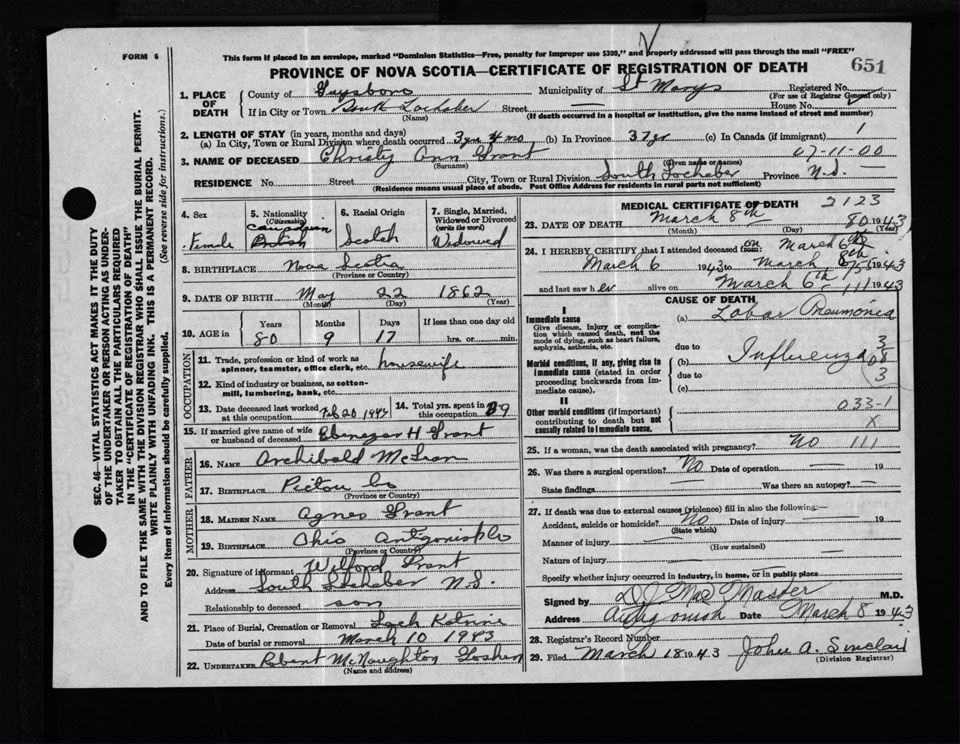 FORM 6
This form if placed in an envelope, marked "Dominion Statistics—Free, penalty for improper use $300," and properly addressed will pass through the mail "FREE"
PROVINCE OF NOVA SCOTIA—CERTIFICATE OF REGISTRATION OF DEATH
651
1. PLACE OF DEATH
County of Guysboro Municipality of St Marys Registered No.
(For use of Registrar General only)
If in City or Town South Lochaber Street — House No.
(Name) (If death occurred in a hospital or institution, give the name instead of street and number)
2. LENGTH OF STAY (in years, months and days)
(a) In City, Town or Rural Division where death occurred 3 yrs 4 mo (b) In Province 37 yr (c) In Canada (if immigrant) 1
3. NAME OF DECEASED Christy Ann Grant 07-11-00
(Surname) (Given name or names)
RESIDENCE No. Street City, Town or Rural Division South Lochaber Province N.S.
(Residence means usual place of abode. Post Office Address for residents in rural parts not sufficient)
4. Sex
Female
5. Nationality
(Citizenship)
Canadian
British
6. Racial Origin
Scotch
7. Single, Married, Widowed or Divorced
(write the word)
Widowed
8. BIRTHPLACE Nova Scotia
(Province or Country)
9. DATE OF BIRTH May 22 1862
(Month) (Day) (Year)
10. AGE in Years Months Days If less than one day old
80 9 17 hrs. or min.
OCCUPATION
11. Trade, profession or kind of work as spinner, teamster, office clerk, etc. housewife
12. Kind of industry or business, as cotton-mill, lumbering, bank, etc.
13. Date deceased last worked at this occupation Feb 20 1943
14. Total yrs. spent in 29
15. If married give name of wife or husband of deceased Ebenezer H Grant
FATHER
16. NAME Archibald McLean
17. BIRTHPLACE Pictou Co
(Province or Country)
MOTHER
18. MAIDEN NAME Agnes Grant
19. BIRTHPLACE Ohio Antigonish Co
(Province or Country)
20. Signature of informant Wilford Grant
Address South Lochaber N.S.
Relationship to deceased son
21. Place of Burial, Cremation or Removal Loch Katrine
Date of burial or removal March 10 1943
22. UNDERTAKER Robert McNaughton Goshen
(Name and address)
MEDICAL CERTIFICATE OF DEATH 2123
23. DATE OF DEATH March 8th 80 1943
(Month) (Day) (Year)
24. I HEREBY CERTIFY that I attended deceased from: on March 6th
March 6 1943 to March 8th 1943
and last saw her alive on March 6th 111 1943
CAUSE OF DEATH
I
Immediate cause
Give disease, injury or complication which caused death, not the mode of dying, such as heart failure, asphyxia, asthenia, etc.
(a) Lobar Pneumonia
due to
Morbid conditions, if any, giving rise to immediate cause (stated in order proceeding backwards from immediate cause).
(b) Influenza
due to
(c)
3
08
3
II
Other morbid conditions (if important) contributing to death but not causally related to immediate cause.
033-1
X
25. If a woman, was the death associated with pregnancy? No 111
26. Was there a surgical operation? No Date of operation — 19
State findings — Was there an autopsy? —
27. If death was due to external causes (violence) fill in also the following:—
Accident, suicide or homicide? No Date of injury — 19
(State which)
Manner of injury —
(How sustained)
Nature of injury —
Specify whether injury occurred in industry, in home, or in public place
Signed by Mac Master M.D.
Address Antigonish Date March 8 1943
28. Registrar's Record Number
29. Filed March 18 1943 John A. Sinclair
(Division Registrar)
SEC. 46—VITAL STATISTICS ACT MAKES IT THE DUTY
OF THE UNDERTAKER OR PERSON ACTING AS UNDER-
TAKER TO OBTAIN ALL THE PARTICULARS REQUIRED
IN THE "CERTIFICATE OF REGISTRATION OF DEATH"
AND TO FILE THE SAME WITH THE DIVISION REGISTRAR WHO SHALL ISSUE THE BURIAL PERMIT.
WRITE PLAINLY WITH UNFADING INK. THIS IS A PERMANENT RECORD.
Every item of information should be carefully supplied. (See reverse side for instructions.)